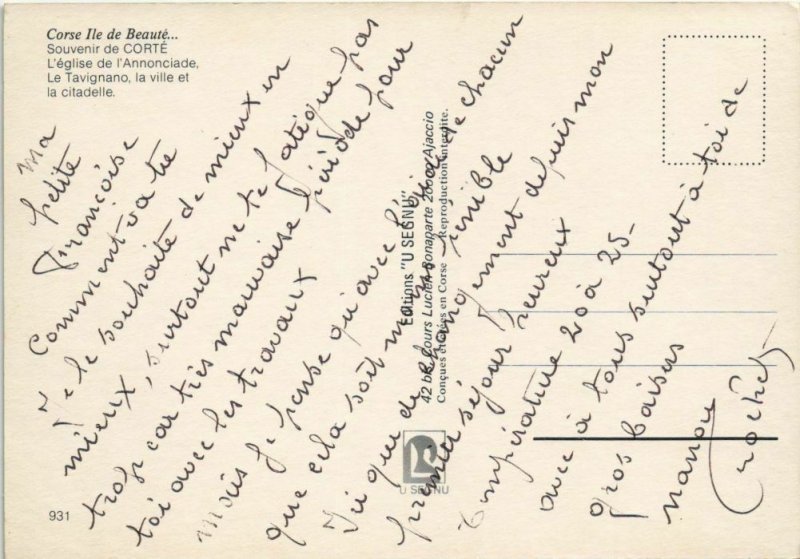 Corse Ile de Beauté...
Souvenir de CORTÉ
L'église de l'Annonciade,
Le Tavignano, la ville et
la citadelle.
Ma
petite
Françoise
Comment va te
Je te souhaite de mieux en
mieux, surtout ne te fatigue pas
trop car très mauvaise période pour
toi avec les travaux
mais je pense qu'avec de chacun
que cela soit moins pénible
J'ai que de changement depuis mon
premier séjour heureux
température 20 à 25-
avec à tous surtout à toi de
gros baisers
manou
Crochet
Editions "U SEGNU"
42 bis, Cours Lucien Bonaparte 20000 Ajaccio
Conçues et créées en Corse - Reproduction interdite.
U SEGNU
931